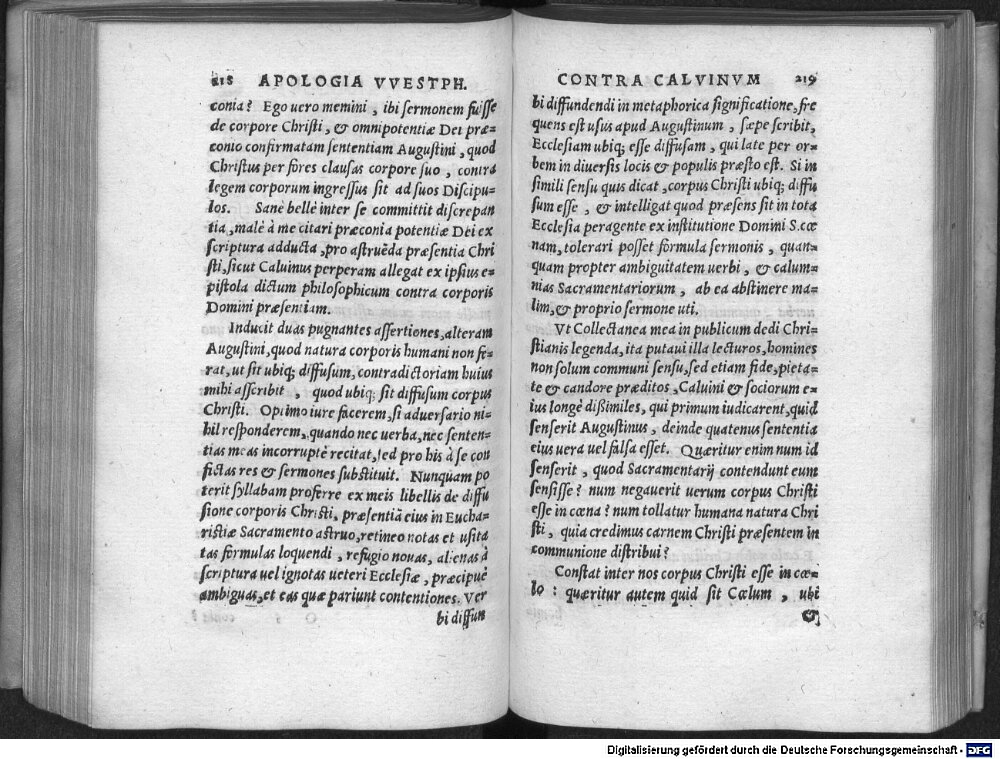 218 APOLOGIA VVESTPH.
conia? Ego uero memini, ibi sermonem fuisse
de corpore Christi, & omnipotentiæ Dei præ-
conio confirmatam sententiam Augustini, quod
Christus per fores clausas corpore suo, contra
legem corporum ingressus sit ad suos Discipu-
los. Sanè bellè inter se committit discrepan
tia, malè à me citari præconia potentiæ Dei ex
scriptura adducta, pro astruẽda præsentia Chri
sti, sicut Caluinus perperam allegat ex ipsius e-
pistola dictum philosophicum contra corporis
Domini præsentiam.
Inducit duas pugnantes assertiones, alteram
Augustini, quod natura corporis humani non fe-
rat, ut sit ubiq; diffusum, contradictoriam huius
mihi asscribit, quod ubiq; sit diffusum corpus
Christi. Optimo iure facerem, si aduersario ni-
hil responderem, quando nec uerba, nec senten-
tias meas incorruptè recitat, sed pro his à se con
fictas res & sermones substituit. Nunquam po
terit syllabam proferre ex meis libellis de diffu
sione corporis Christi, præsentiã eius in Eucha-
ristiæ Sacramento astruo, retineo notas et usita
tas formulas loquendi, refugio nouas, alienas à
scriptura uel ignotas ueteri Ecclesiæ, præcipuè
ambiguas, et eas quæ pariunt contentiones. Ver
bi diffun
CONTRA CALVINVM 219
bi diffundendi in metaphorica significatione, fre
quens est usus apud Augustinum, sæpe scribit,
Ecclesiam ubiq; esse diffusam, qui late per or-
bem in diuersis locis & populis præsto est. Si in
simili sensu quis dicat, corpus Christi ubiq; diffu
sum esse, & intelligat quod præsens sit in tota
Ecclesia peragente ex institutione Domini S. cœ
nam, tolerari posset formula sermonis, quan-
quam propter ambiguitatem uerbi, & calum-
nias Sacramentariorum, ab ea abstinere ma-
lim, & proprio sermone uti.
Vt Collectanea mea in publicum dedi Chri-
stianis legenda, ita putaui illa lecturos, homines
non solum communi sensu, sed etiam fide, pieta-
te & candore præditos, Caluini & sociorum e-
ius longè dißimiles, qui primum iudicarent, quid
senserit Augustinus, deinde quatenus sententia
eius uera uel falsa esset. Quæritur enim num id
senserit, quod Sacramentarij contendunt eum
sensisse? num negauerit uerum corpus Christi
esse in cœna? num tollatur humana natura Chri
sti, quia credimus carnem Christi præsentem in
communione distribui?
Constat inter nos corpus Christi esse in cœ-
lo: quæritur autem quid sit Cœlum, ubi
&
Digitalisierung gefördert durch die Deutsche Forschungsgemeinschaft - DFG